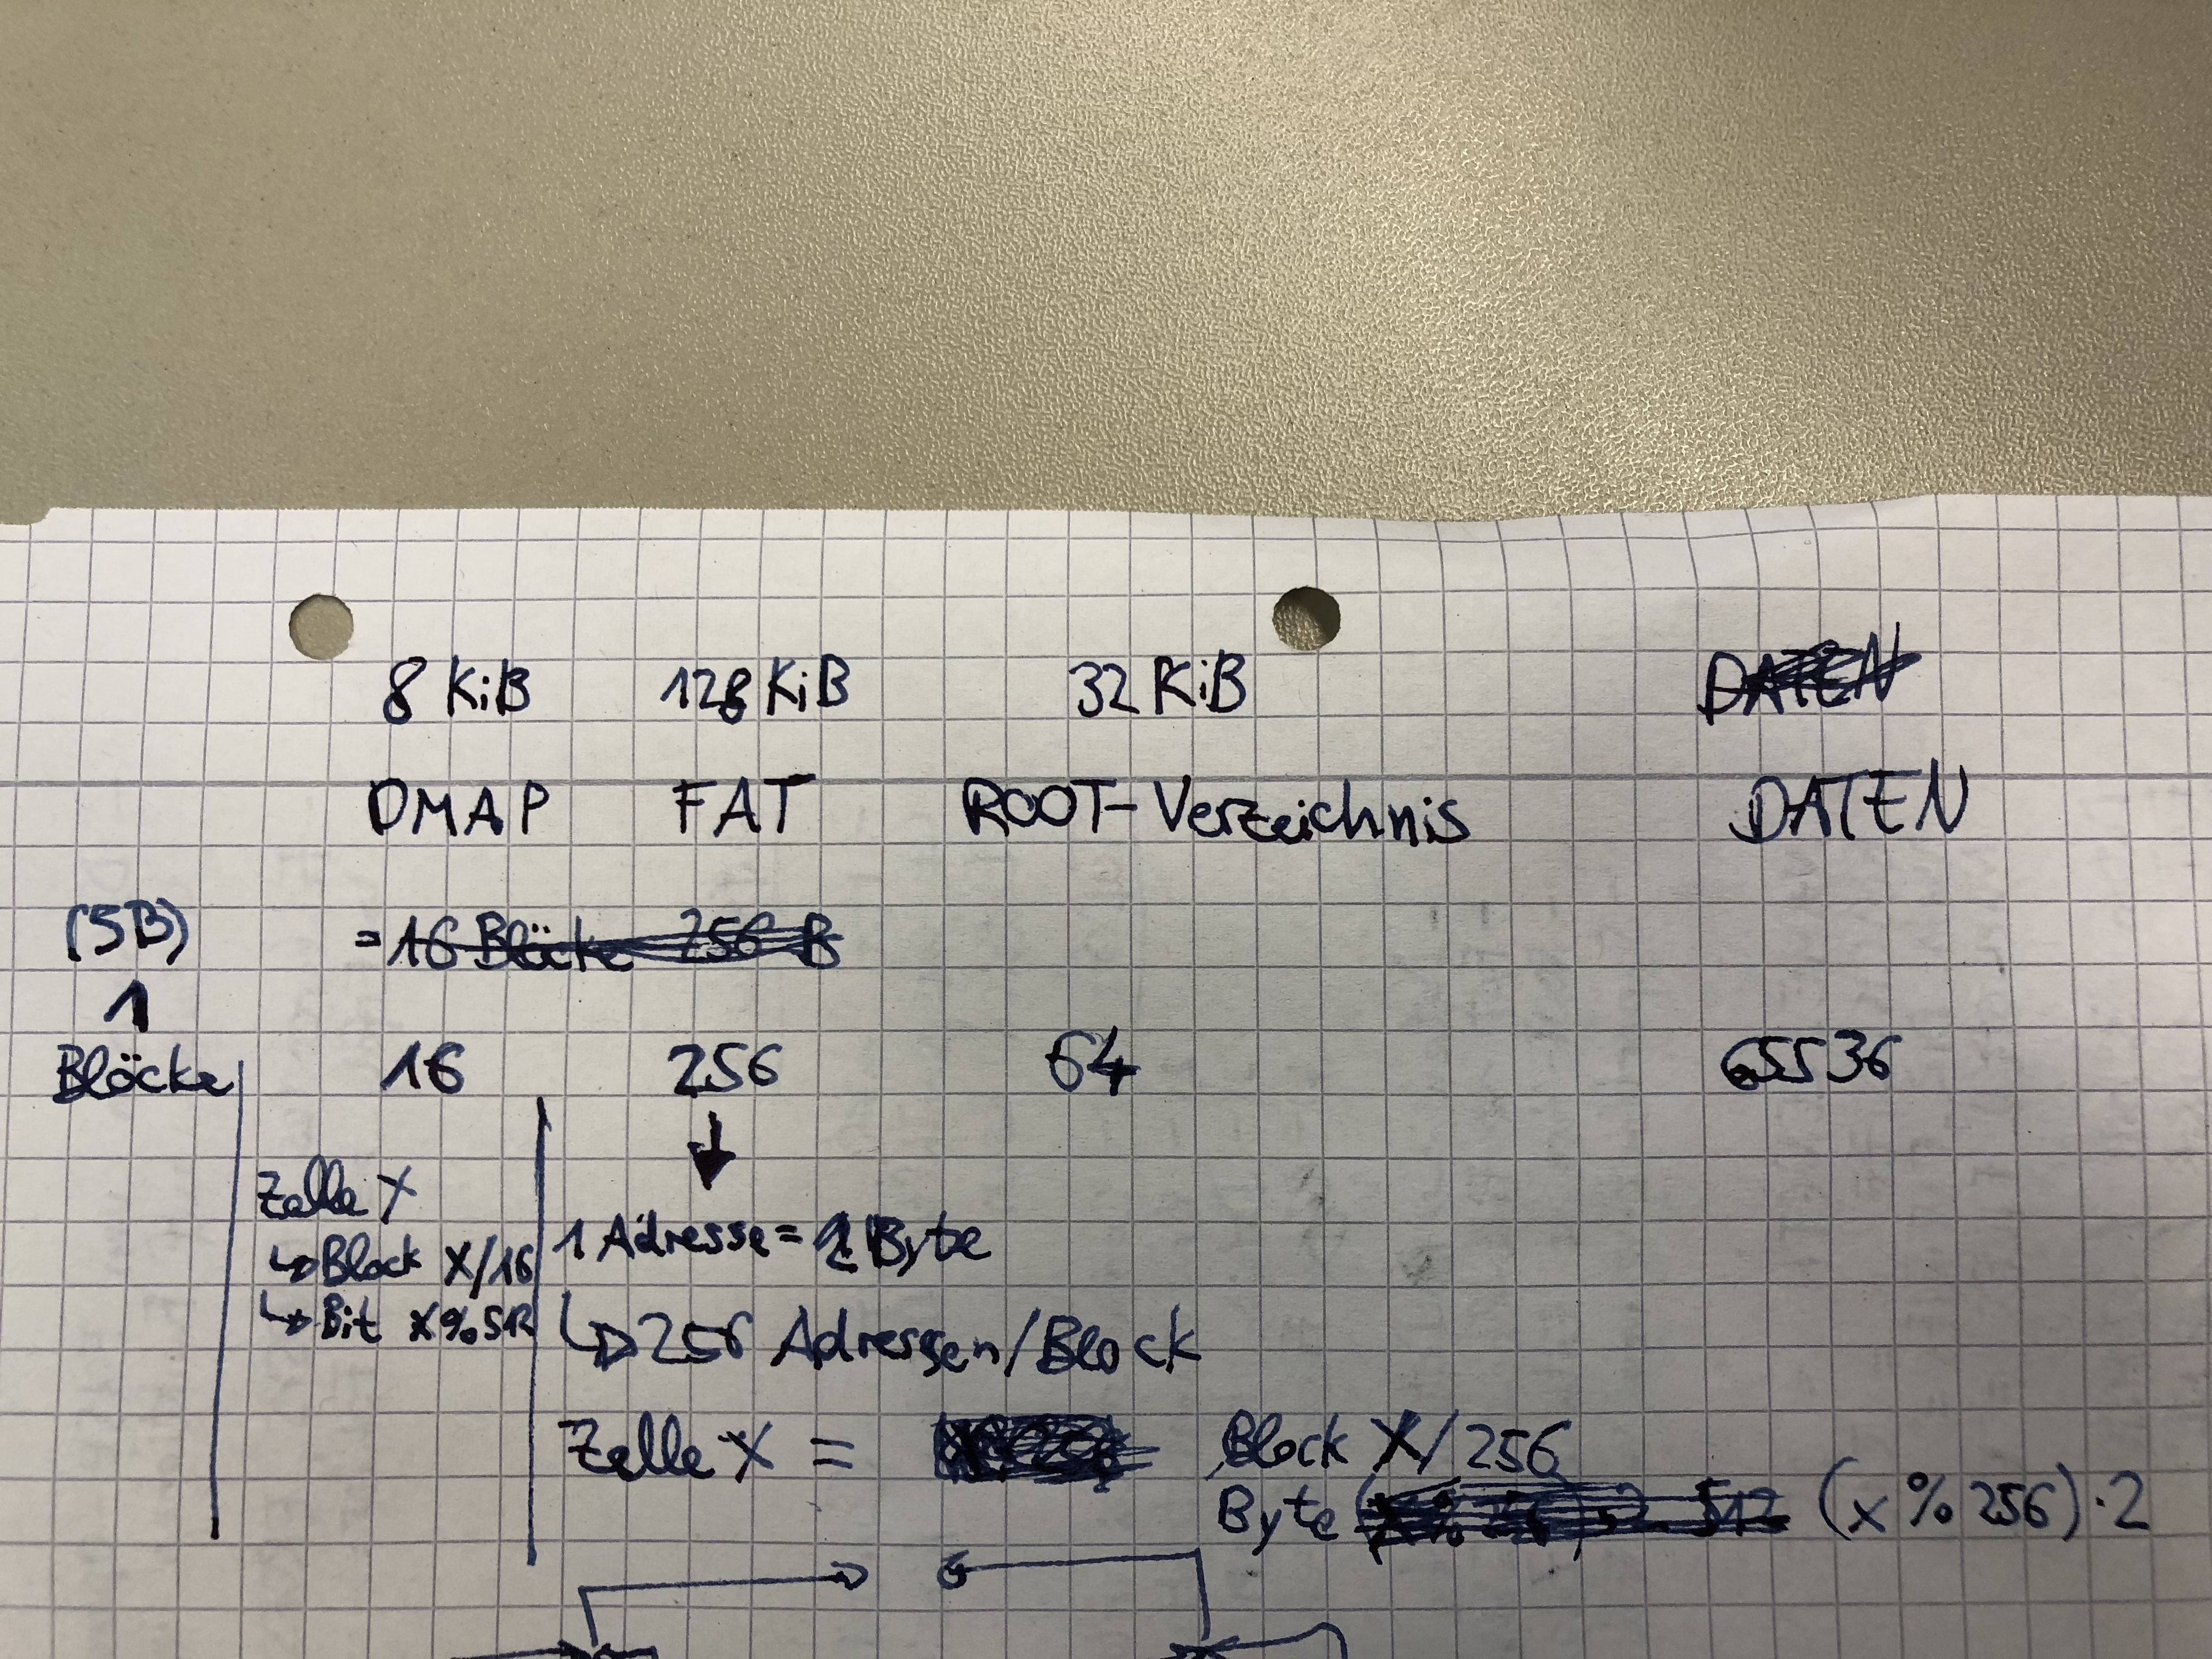 8 KiB 128 KiB 32 KiB DATEN
DMAP FAT ROOT-Verzeichnis DATEN
(SB) = 16 Blöcke 256 B
1
Blöcke 16 256 64 65536
Zelle X
↳ Block X/16
↳ Bit X%512
1 Adresse = 2 Byte
↳ 256 Adressen/Block
Zelle X = Block X/256
Byte (x % 256) · 2